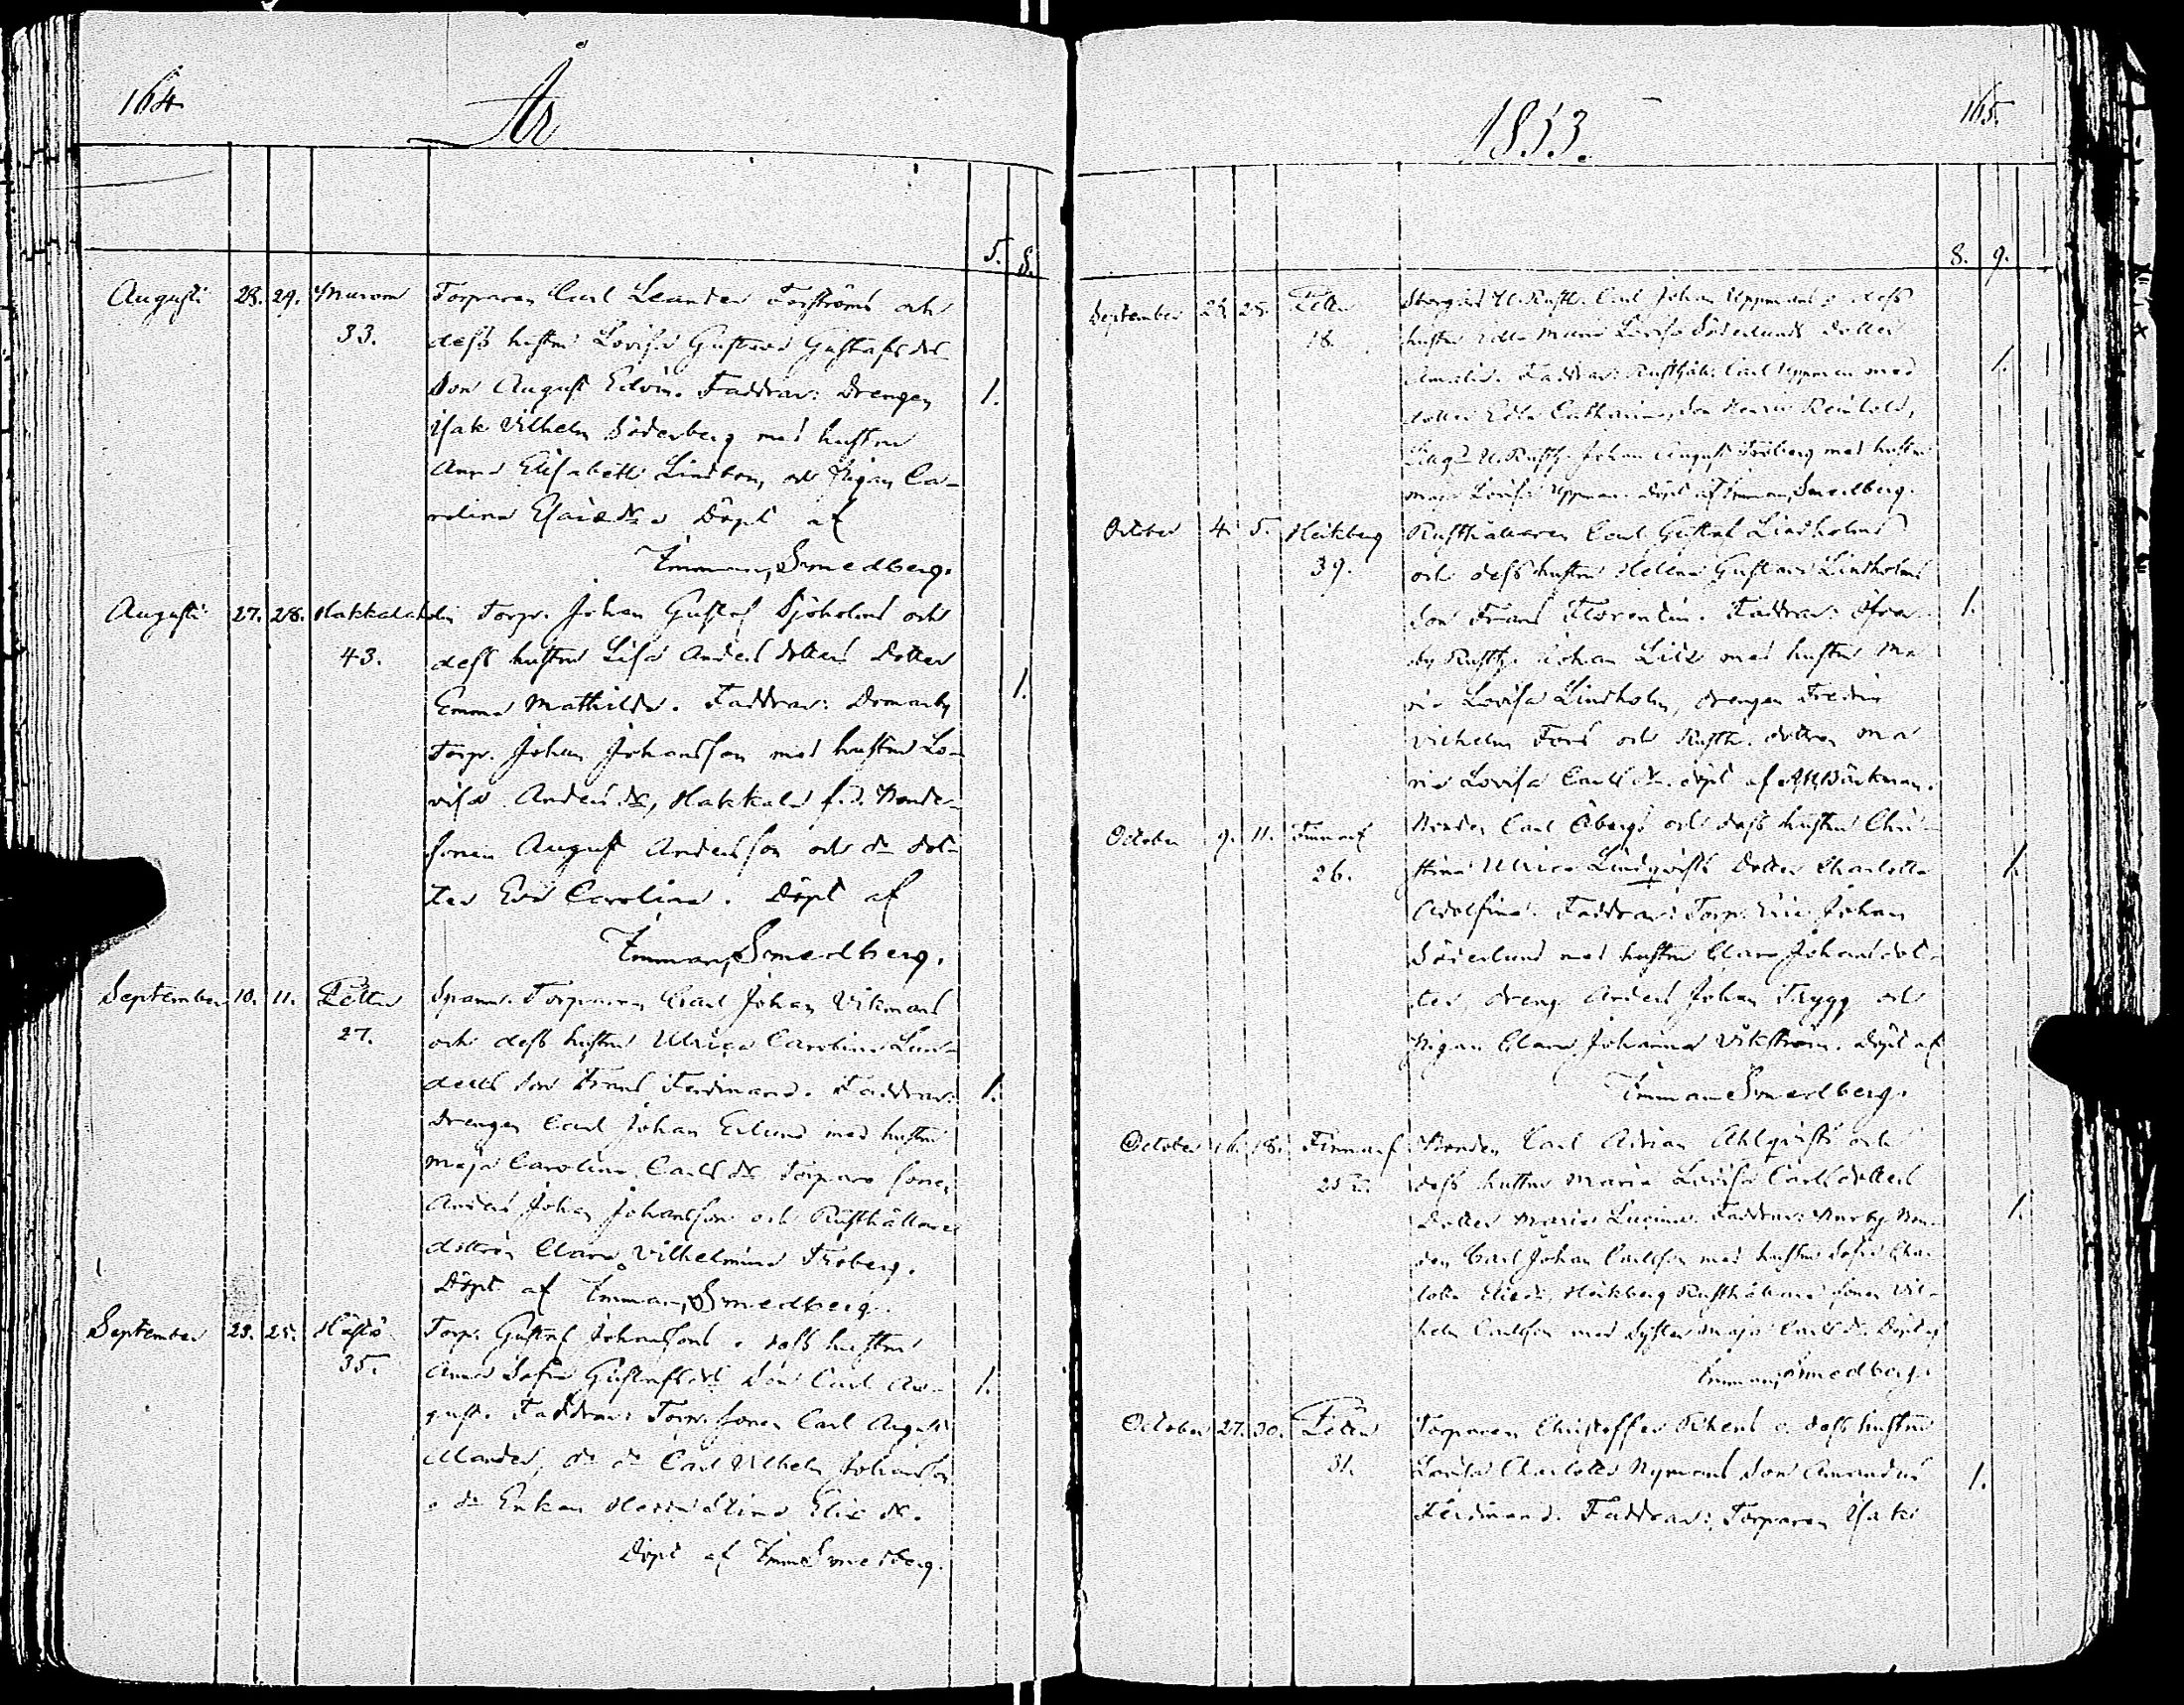 164.
År
5. 8.
Augusti 28. 29. Murom Torparen Carl Leander Forströms och
33. dess hustru Lovisa Gustava Gustafsdrs
Son August Edvin. Faddrar: Drengen 1.
Isak Vilhelm Söderberg med hustru
Anna Elisabeth Lindbom, och Pigan Ca-
rolina Dopt af
Imman. Smedberg.
Augusti 27. 28. Torp. Johan Gustaf Sjöholms och
43. dess hustru Lisa Anders dotters Dotter
Emma Mathilda. Faddrar: Domarby 1.
Torp. Johan Johansson med hustru Lo-
visa Anders dr, Hakkala f.d. Bonde-
sonen August Andersson och do dot-
ter Eva Carolina. Döpt af
Imman. Smedberg.
September 10. 11. Petter Torparen Carl Johan Vikmans
27. och dess hustru Ulrica Carolina Lun-
ders son Frans Ferdinand. Faddrar: 1.
Drengen Carl Johan Erlund med hustru
Maja Carolina Carls dr Torpare sonen
Anders Johan Johansson och Rusthållare
dottren Clara Vilhelmina Froberg.
Döpt af Imman. Smedberg.
September 23. 25. Hästö Torp. Gustaf Johanssons o dess hustru
35. Anna Sofia Gustafsdrs Son Carl Au- 1.
gust. Faddrar: Torp. sonen Carl August
do do Carl Vilhelm Johansson
o do Enkan Stina dr.
Döpt af Imm. Smedberg.
1853. 165.
8. 9.
September 23. 25. Petter Rusth. Carl Johan Uppmans o dess
18. hustru Edla Maria Lovisa Söderlunds Dotter
Amalia. Faddrar: Rusthål. Carl Uppman med 1.
dotter Edla Catharina, son Henric Reinhold,
Rusth. Johan August Fröberg med hustru
Maja Lovisa Uppman. Döpt af Imman. Smedberg.
October 4. 5. Heikberg Rusthållaren Carl Gustaf Lindholms
39. och dess hustru Helena Gustava Lindholms
Son Frans Florentin. Faddrar: 1.
by Rusth. Johan med hustru Ma
ria Lovisa Lindholm, drengen Fredric
Vilhelm Fors och Rusth. dottren Ma
ria Lovisa Carls dr. döpt af Bäckman.
October 9. 11. Finnarf Bonden Carl Öbergs och dess hustru Chri-
26. stina Ulrica Lindqvists Dotter Charlotta 1.
Adolfina. Faddrar: Torp. Eric Johan
Söderlund med hustru Clara Johansdot-
ter, dreng Anders Johan Trygg och
Pigan Clara Johanna Vikström. Döpt af
Imman Smedberg.
October 16. 18. Finnarf Bonden Carl Adrian Ahlqvists och
25 dess hustru Maria Lovisa Carlsdotters
Dotter Maria Lucina. Faddrar: Norby Bon- 1.
den Carl Johan Carlsson med hustru Sofia Char-
lotta Heikberg Rusthållare sonen Vil-
helm Carlsson med Syster Maja Carls dr. Döpt af
Imman. Smedberg.
October 27. 30. Petter Torparen Christoffer o. dess hustru
31. Lovisa Charlotta Nymans Son Amandus 1.
Ferdinand. Faddrar: Torparen Isak